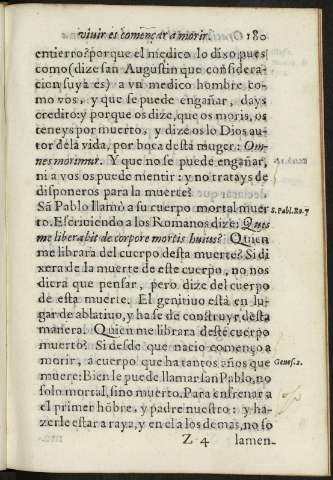 viuir es començar a morir. 180
entierro? porque el medico lo dixo, pues
como (dize san Augustin que considera-
cion suya es) a vn medico hombre co-
mo vos, y que se puede engañar, days
credito: y porque os dize, que os moris, os
teneys por muerto, y dizeos lo Dios au-
tor de la vida, por boca desta muger: Om-
nes morimur. Y que no se puede engañar,
ni a vos os puede mentir: y no tratays de
disponeros para la muerte?
Sā Pablo llamò a su cuerpo mortal muer
to. Escriuiendo a los Romanos dize: Ques
me liberabit de corpore mortis huius? Quien
me librara del cuerpo desta muerte? Si di
xera de la muerte de este cuerpo, no nos
diera que pensar, pero dize del cuerpo
de esta muerte. El genitiuo està en lu-
gar de ablatiuo, y ha se de construyr desta
manera. Quien me librara deste cuerpo
muerto? Si desde que nacio començo a
morir, a cuerpo que ha tantos años que
muere: Bien le puede llamar san Pablo, no
solo mortal, sino muerto. Para enfrenar a
el primer hōbre, y padre nuestro: y ha-
zerle estar a raya, y en el a los demas, no so
S. Pabl. Ro. 7
Genes. 2.
Z 4 lamen-